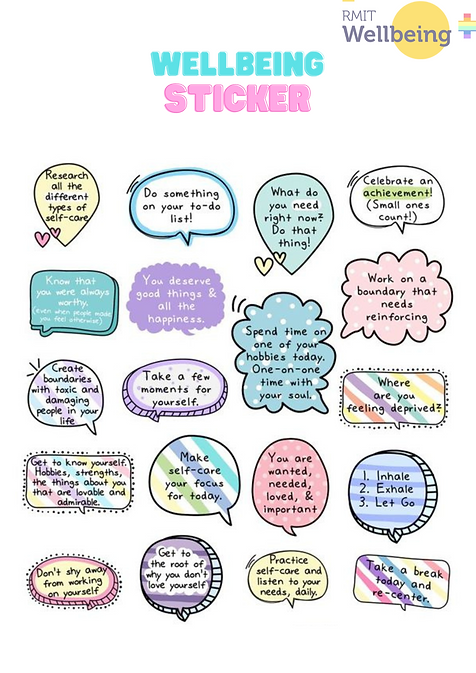 RMIT
Wellbeing
WELLBEING
STICKER
Research
all the
different
types of
self-care
Do something
on your to-do
list!
What do
you need
right now?
Do that
thing!
Celebrate an
achievement!
(Small ones
count!)
Know that
you were always
worthy.
(even when people made
you feel otherwise)
You deserve
good things &
all the
happiness.
Spend time on
one of your
hobbies today.
One-on-one
time with
your soul.
Work on a
boundary that
needs
reinforcing
Create
boundaries
with toxic and
damaging
people in your
life
Take a few
moments for
yourself.
Where
are you
feeling deprived?
Get to know yourself.
Hobbies, strengths,
the things about you
that are lovable and
admirable.
Make
self-care
your focus
for today.
You are
wanted,
needed,
loved, &
important
1. Inhale
2. Exhale
3. Let Go
Don't shy away
from working
on yourself
Get to
the root of
why you don't
love yourself
Practice
self-care and
listen to your
needs, daily.
Take a break
today and
re-center.